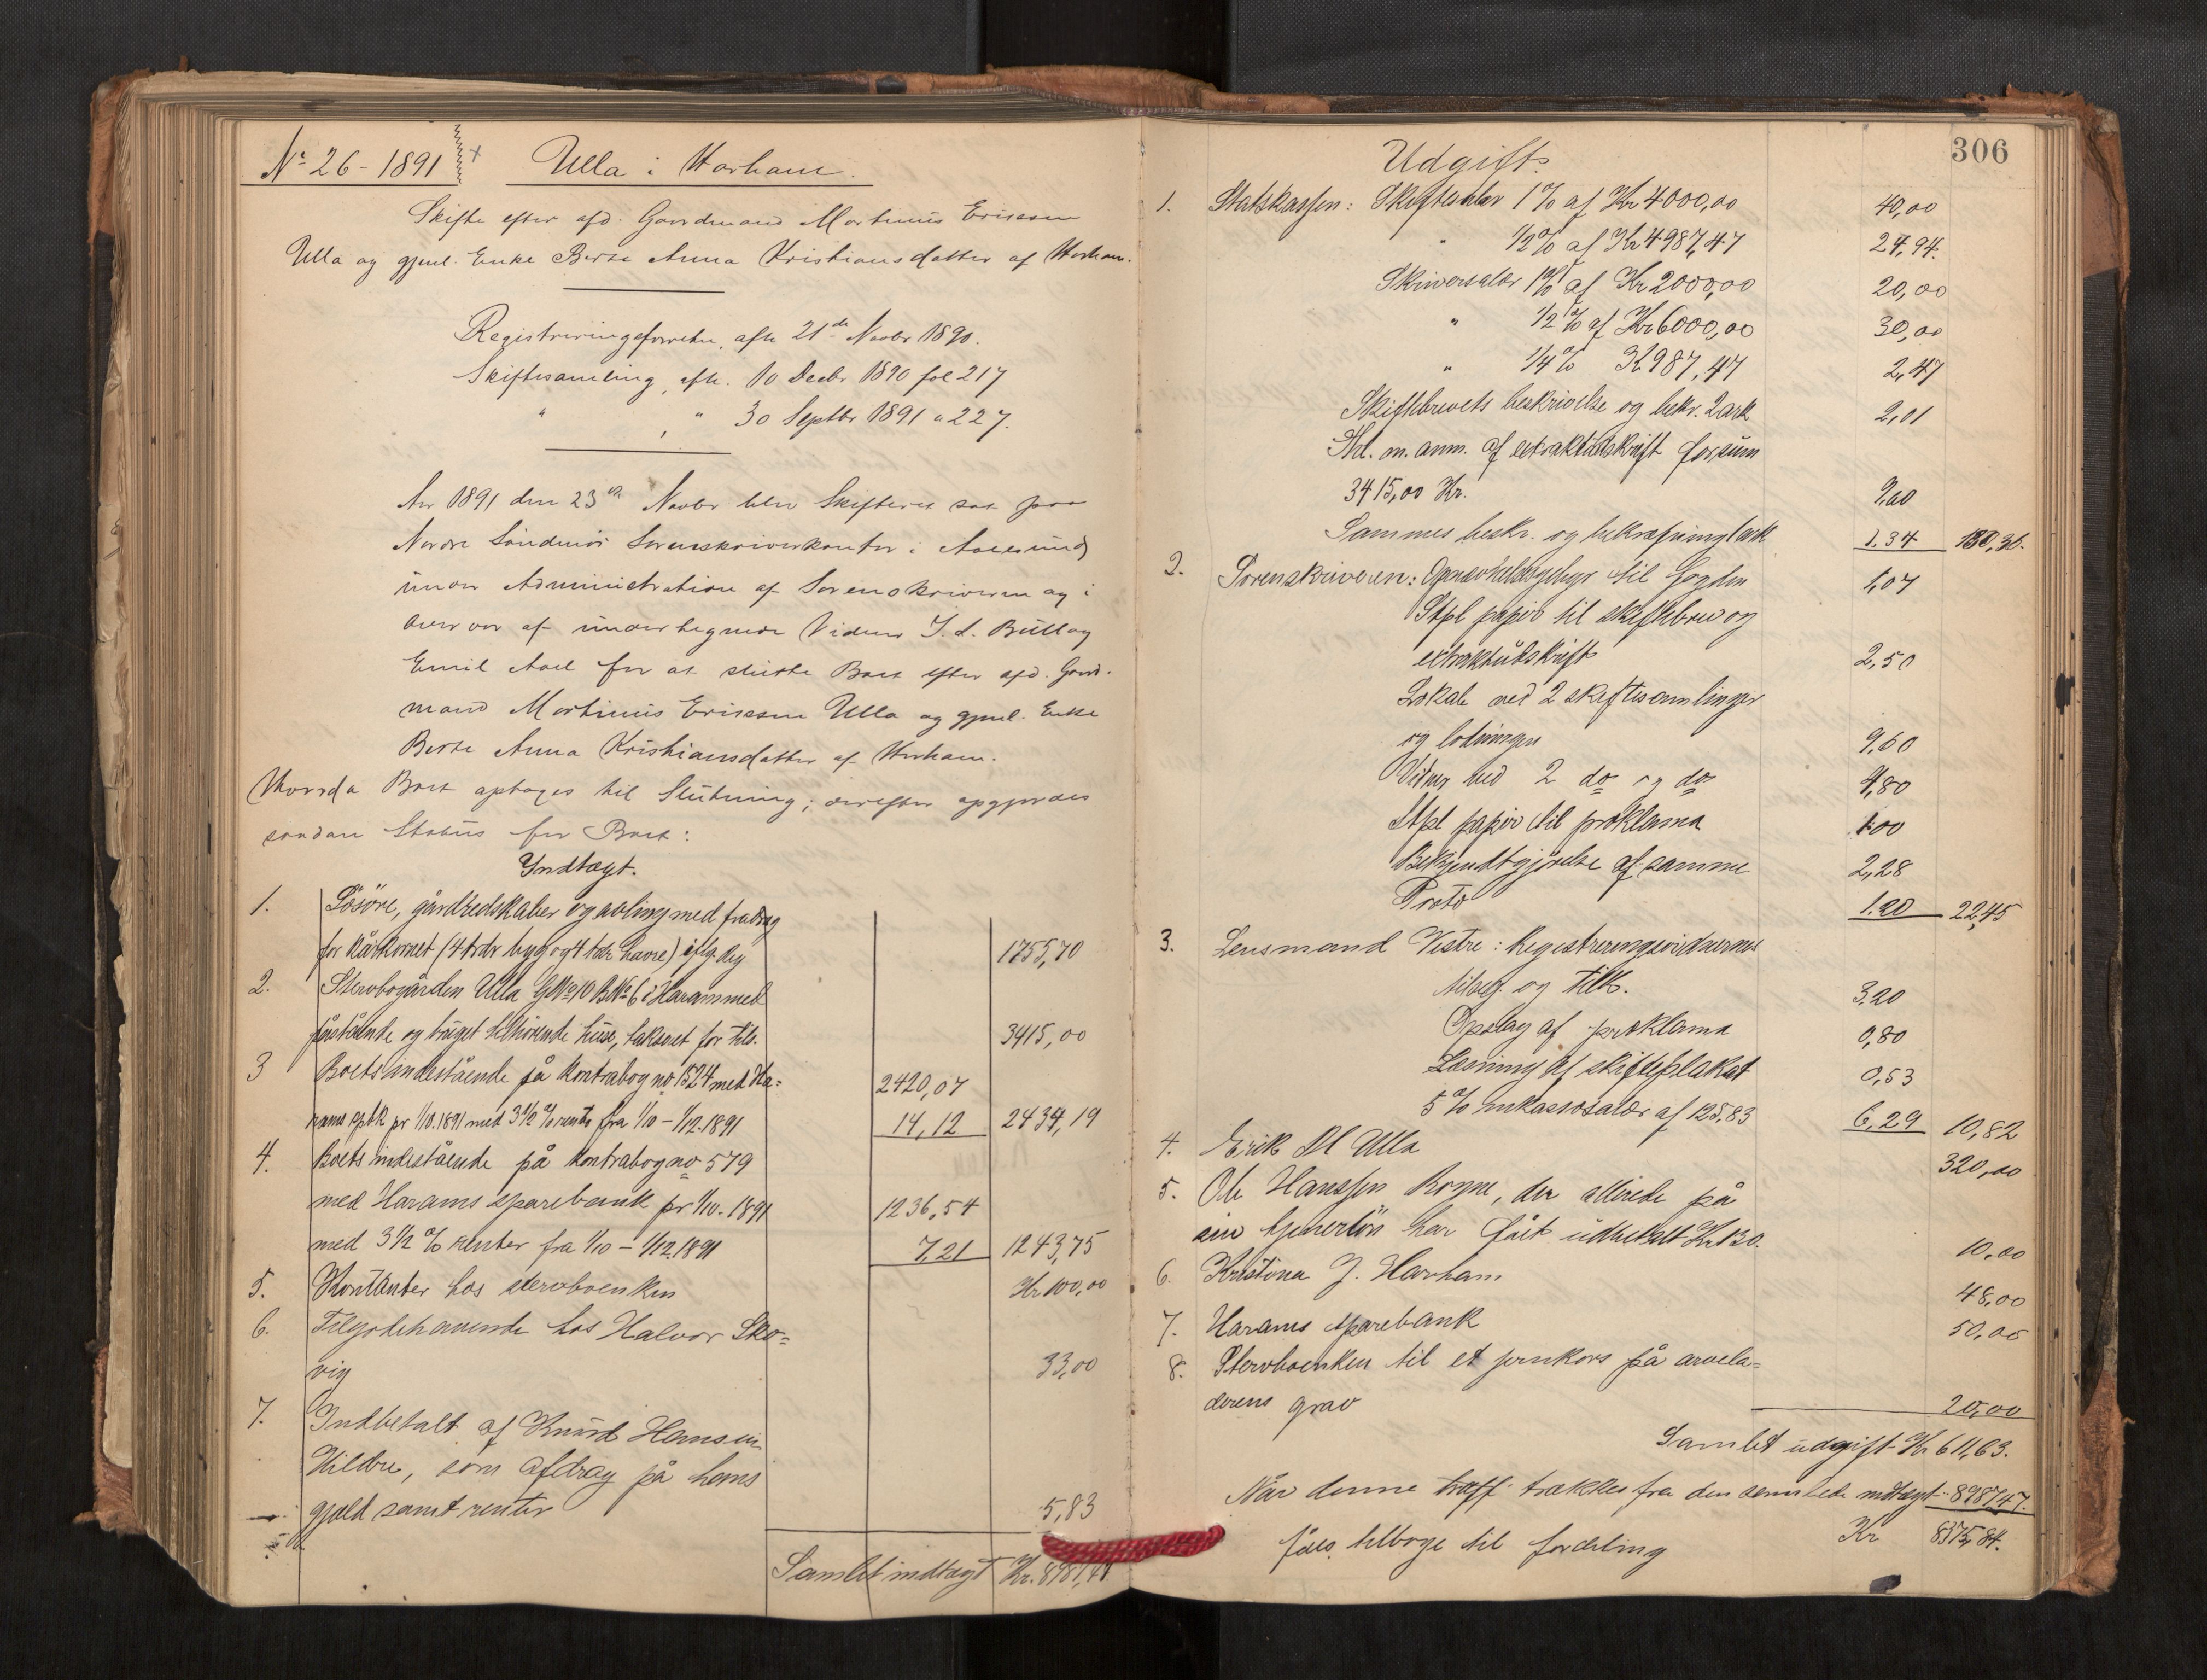 No 26 - 1891
Ulla i Harham.
Skifte efter afd. Gaardmand Martinus Eriksen
Ulla og gjenl. Enke Berte Anna Kristiansdatter af Harham.
Registreringsforretn. afh 21de Novbr 1890.
Skiftesamling afh. 10 Decbr 1890 fol 217
" " 30 Septbr 1891 " 227.
Aar 1891 den 23de Novbr blev Skifteret sat paa
Nordre Söndmörs Sorenskriverkontor i Aalesund
under Administration af Sorenskriveren og i
Overvær af undertegnede Vidner J. L. Bull og
Emil Aael for at slutte Boet efter afd. Gaard-
mand Martinus Eriksen Ulla og gjenl. Enke
Berte Anna Kristiansdatter af Harham.
Hvorda Boet optoges til Slutning; derefter opgjordes
saadan Status for Boet:
Indtægt.
1. Lösöre, gårdredskaber og avling med fradrag
for kårkornet (4 tdr byg og 4 tdr havre) iflg. Reg 1755,70
2. Stervbogården Ulla GNo 10 BNo 6 i Haram med
påstående og bruget tilhörende huse, takseret for tils. 3415,00
3 Boets indestående på kontrabog no 1524 med Ha= 2420,07
rams spbk pr 1/10.1891 med 3 1/2 % rente fra 1/10 - 1/12.1891 14,12 2434,19
4. Boets indestående på kontrabog no 579
med Harams sparebank pr 1/10.1891 1236,54
med 3 1/2 % renter fra 1/10 - 1/12.1891 7,21 1243,75
5. Kontanter hos stervboenken Kr 100,00
6. Tilgodehavende hos Halvor Sko=
vig 33,00
7. Indbetalt af Knud Hansen
Hildre, som afdrag på hans
gjæld samt renter 5,83
Samlet indtægt Kr. 8987,47
306
Udgift.
1. Statskassen: Skiftesalær 1 % af Kr 4000,00 40,00
" 1/2 % af Kr 4987,47 24,94.
Skriversalær 1 % af Kr 2000,00 20,00
" 1/2 % af Kr 6000,00 30,00
" 1/4 % Kr 987,47 2,47
Skiftebrevets beskrivelse og bekr. 2 ark 2,01
Thl. m. anm. af extraktudskrift for sum
3415,00 Kr. 9,60
Sammes beskr. og bekræftning 1 ark 1.34 130,36.
2. Sorenskriveren: Opnævnelsesgebyr til fogden 1,07
Stpl papir til skiftebrev og
extraktudskrift 2,50
Lokale ved 2 skiftesamlinger
og lodningen 9,60
Vidner ved 2 do og do 4,80
Stpl papir til proklama 1,00
Bekjendtgjörelse af samme 2,28
Porto 1.20 22,45
3. Lensmand Vestre: Registreringsvidnernes
tilsig. og tilk. 3,20
Opslag af proklama 0,80
Læsning af skifteplakat 0,53
5 % inkassosalær af 125,83 6,29 10,82
4. Erik M Ulla 320,00
5. Ole Hanssen Rogne, der allerede på
sin tjenerlön har fået udbetalt Kr 130. 10,00
6. Kristina J. Harham 48,00
7. Harams sparebank 50,00
8. Stervboenken til et jernkors på arvela=
derens grav 20,00
Samlet udgift Kr 611,63.
Når denne trækkes fra den samlede indtægt 8987,47.
fåes tilbage til fordeling Kr 8375,84.